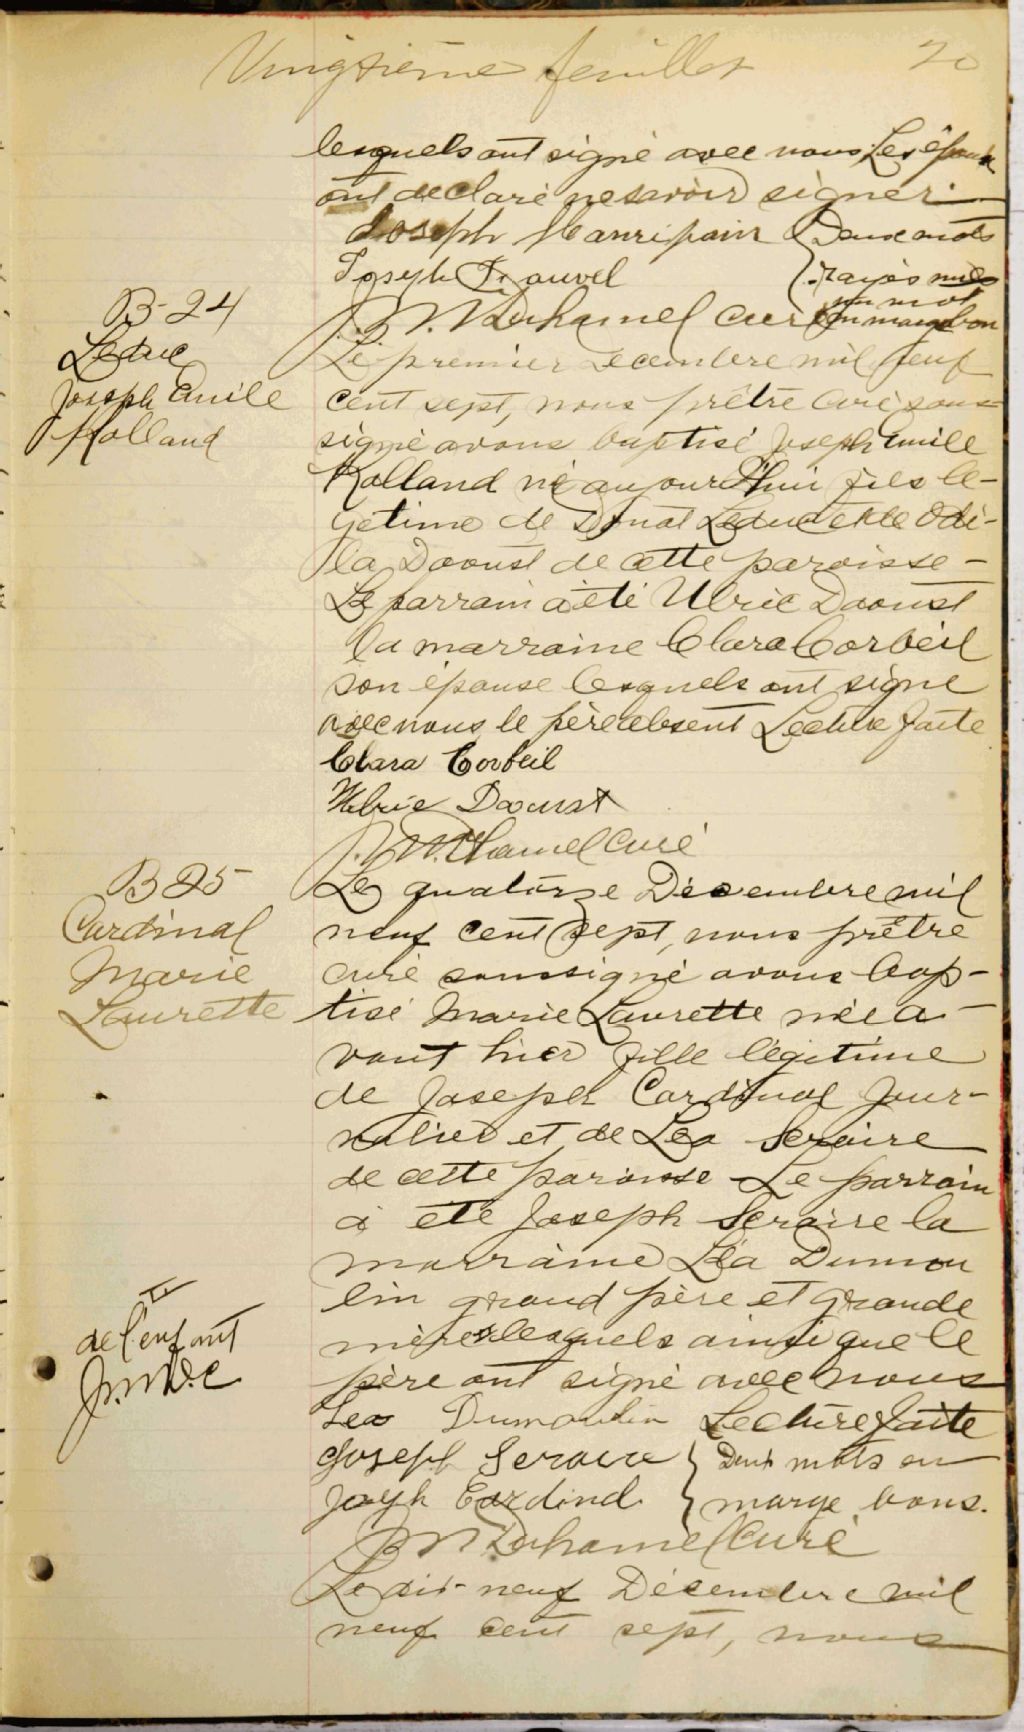 Vingtième feuillet 20
lesquels ont signé avec nous Les époux
ont declaré ne savoir signer.
Joseph Manripain Deux mots
Joseph rayés nuls
un mot
J. M. Duhamel curé en marge bon
B-24
Leduc
Joseph Emile
Rolland
Le premier Decembre mil neuf
cent sept, nous prêtre curé sous-
signé avons baptisé Joseph Emile
Rolland né aujourd'hui fils le-
getime de Donat Leduc et de Odi-
la Daoust de cette paroisse -
Le parrain a été Ulric Daoust
la marraine Clara Corbeil
son épouse lesquels ont signé
avec nous le père absent Lecture faite
Clara Corbeil
Ulric Daoust
J. M. Duhamel curé
B 25
Cardinal
Marie
Laurette
Le quatorze Décembre mil
neuf cent sept, nous prêtre
curé soussigné avons bap-
tisé Marie Laurette née a-
vant hier fille légitime
de Joseph Cardinal jour-
nalier et de Léa Seraire
de cette paroisse - Le parrain
a été Joseph Seraire la
marraine Léa Dumou
lin grand père et grande
mère lesquels ainsi que le
père ont signé avec nous
de l'enfant
J. M. D. C
Lea Dumoulin Lecture faite
Joseph Seraire Deux mots en
Joseph Cardinal marge bons.
J M Duhamel Curé
Le dix-neuf Décembre mil
neuf cent sept, nous